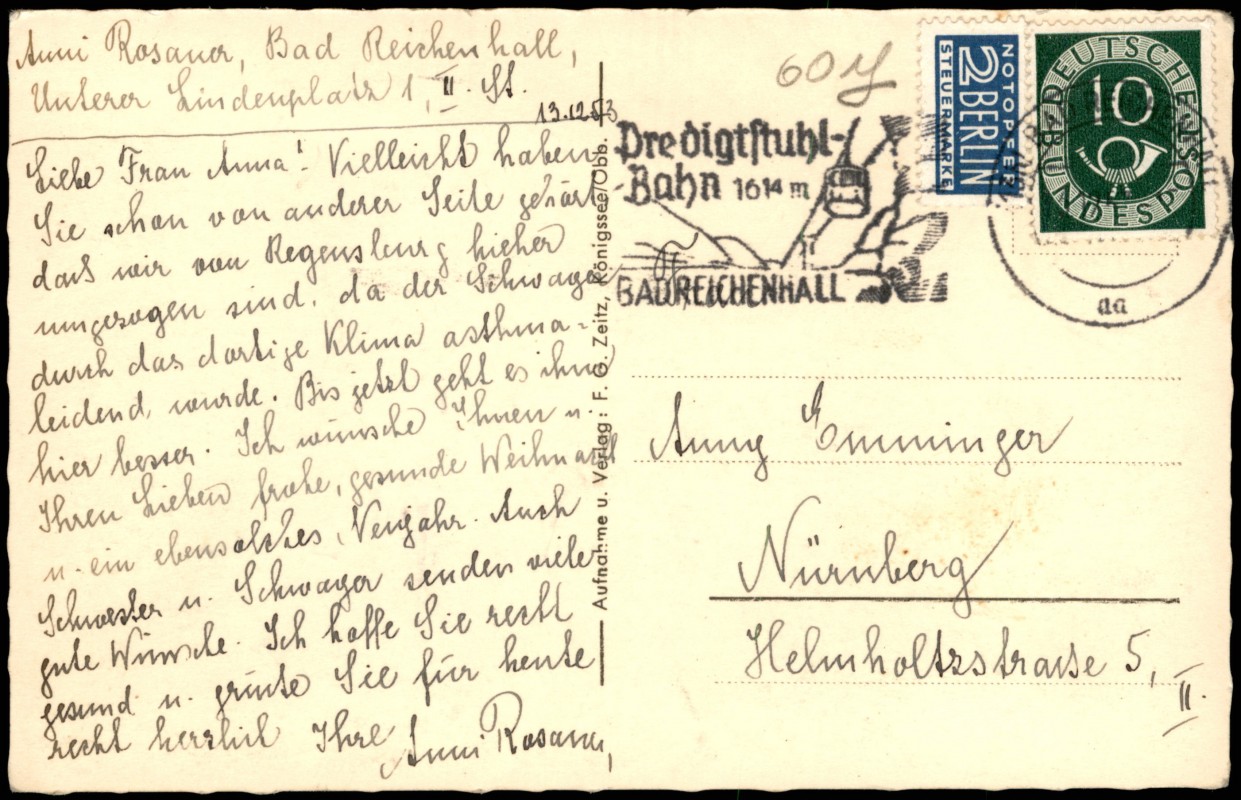 Anni Rosauer, Bad Reichenhall,
Unterer Lindenplatz 1, II. St.
13.12.53
Liebe Frau Anna! Vielleicht haben
Sie schon von anderer Seite gehört
daß wir von Regensburg hieher
umgezogen sind, da der Schwager
durch das dortige Klima asthma-
leidend wurde. Bis jetzt geht es ihm
hier besser. Ich wünsche Ihnen u.
Ihren Lieben frohe, gesunde Weihnacht
u. ein ebensolches Neujahr. Auch
Schwester u. Schwager senden viele
gute Wünsche. Ich hoffe Sie recht
gesund u. grüße Sie für heute
recht herzlich Ihre Anni Rosauer,
Aufnahme u. Verlag: F. G. Zeitz, Königssee/Obb.
60
Predigtstuhl-
-Bahn 1614 m
BAD REICHENHALL
NOTOPFER
2 BERLIN
STEUERMARKE
DEUTSCHE
BUNDESPOST
10
aa
Anny Emminger
Nürnberg
Helmholtzstraße 5,
II.